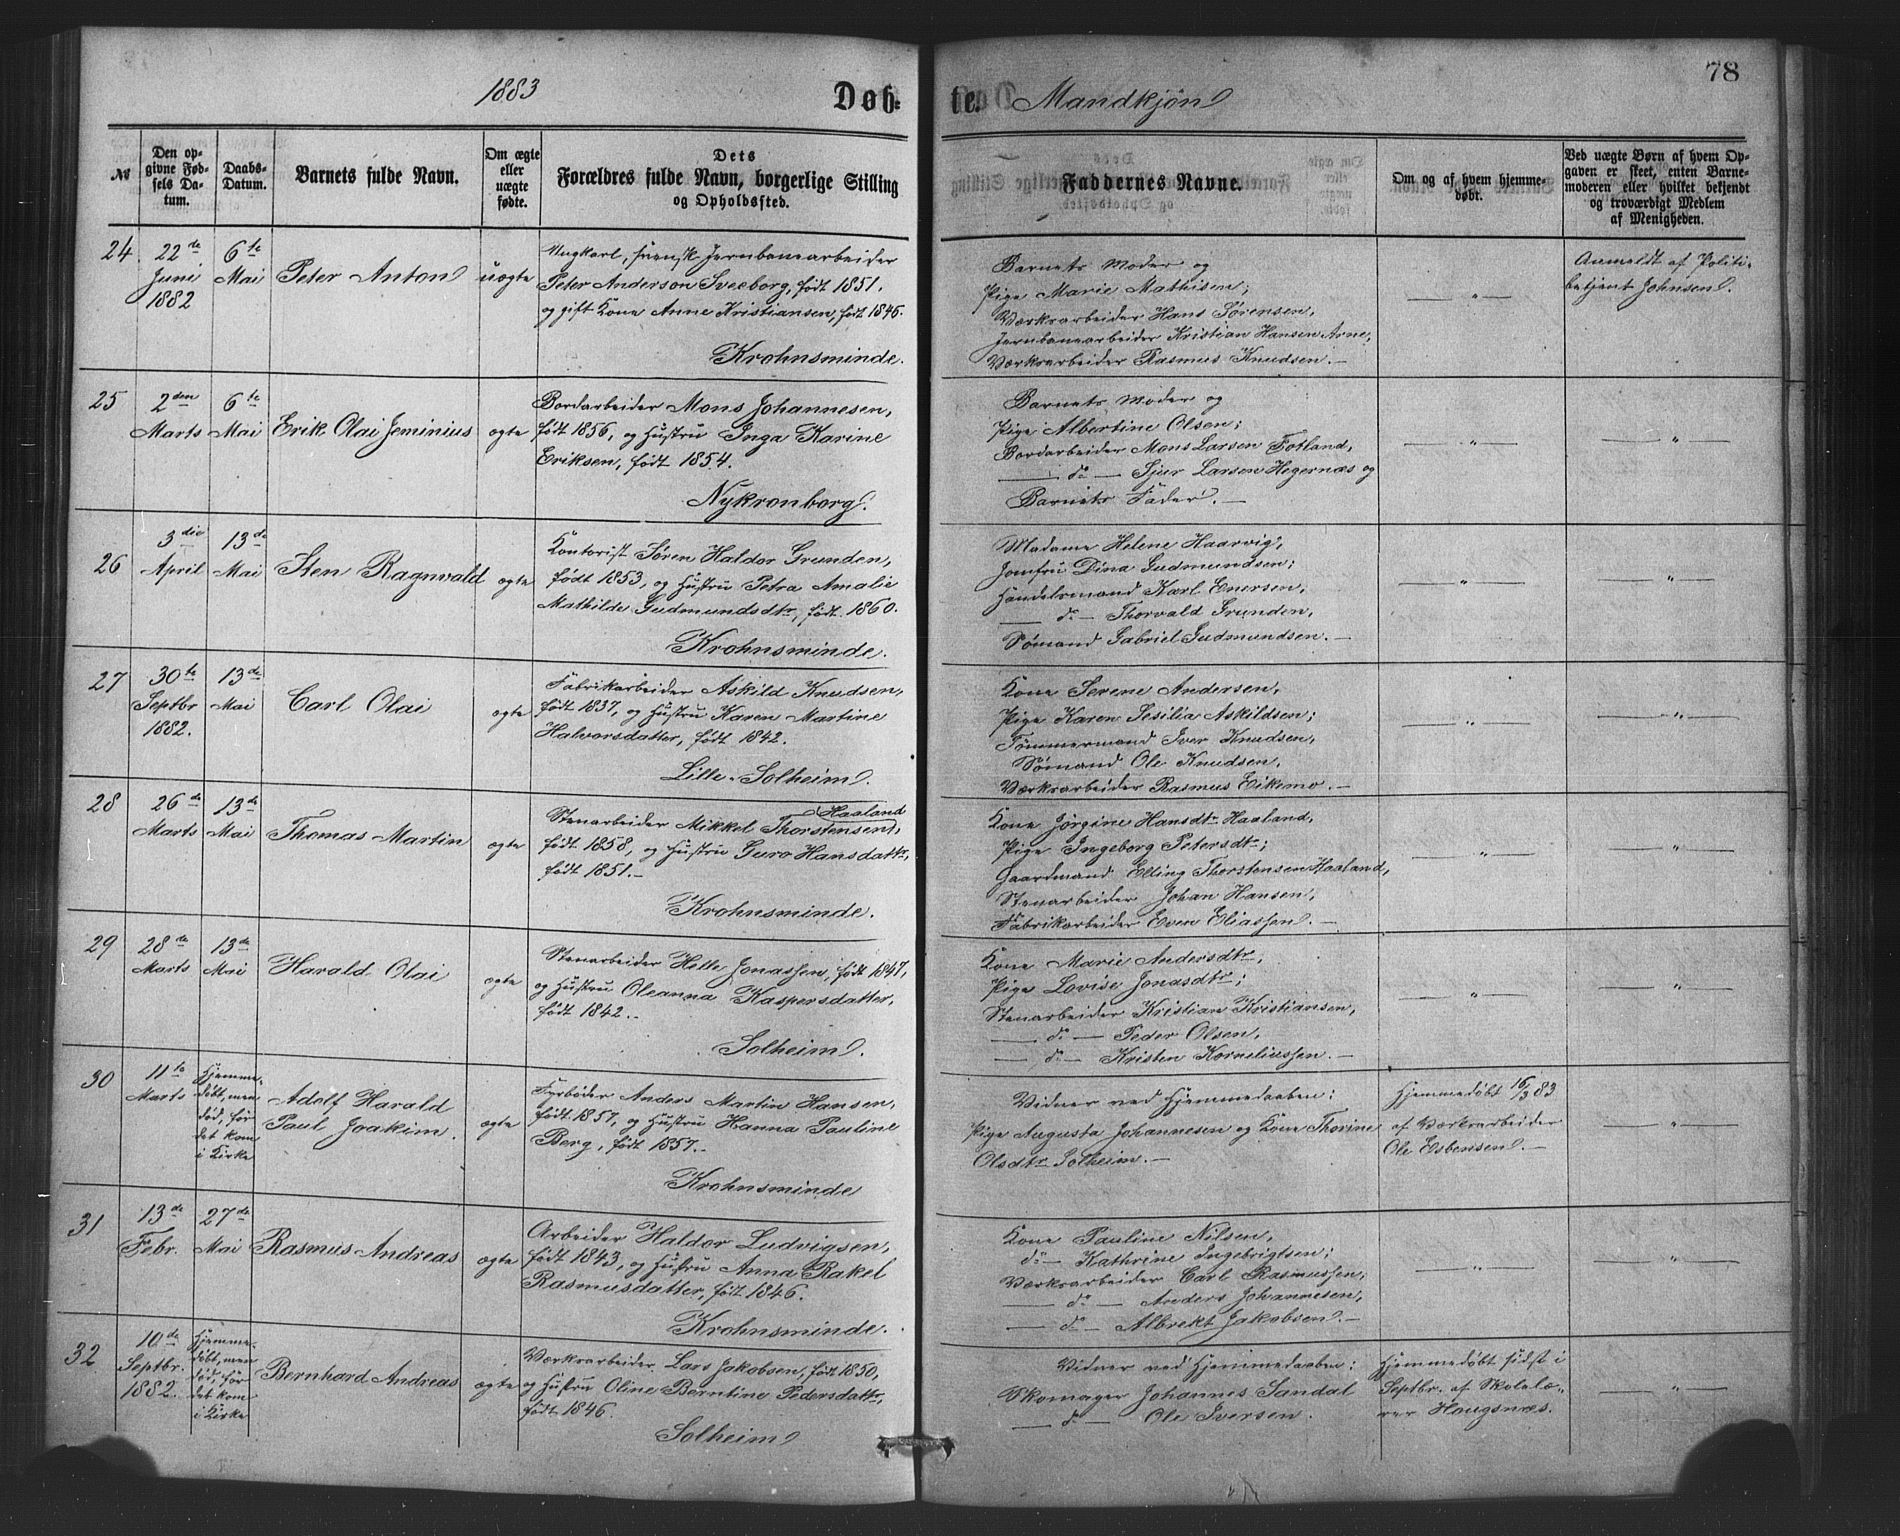 1883
Døb-
№
Den op-
givne Fød-
sels Da-
tum.
Daabs-
Datum.
Barnets fulde Navn.
Om ægte
eller
uægte
fødte.
Dets
Forældres fulde Navn, borgerlige Stilling
og Opholdssted.
24
22de
Juni
1882
6te
Mai
Peter Anton
uægte
Ungkarl, svensk Jernbanearbeider
Peter Anderson Sveeborg, født 1851,
og gift Kone Anne Kristiansen, født 1846.
Krohnsminde.
25
2den
Marts
6te
Mai
Erik Olai Jeminius
ægte
Bordarbeider Mons Johannesen,
født 1856, og Hustru Inga Karine
Eriksen, født 1854.
Nykronborg.
26
3die
April
13de
Mai
Sten Ragnvald
ægte
Kontorist Søren Haldor Grunden,
født 1853, og Hustru Petra Amalie
Mathilde Gudmundsdtr, født 1860.
Krohnsminde.
27
30te
Septbr
1882.
13de
Mai
Carl Olai
ægte
Fabrikarbeider Askild Knudsen,
født 1837, og Hustru Karen Martine
Halvorsdatter, født 1842.
Lille-Solheim.
28
26de
Marts
13de
Mai
Thomas Martin
ægte
Haaland
Stenarbeider Mikkel Thorstensen,
født 1858, og Hustru Guro Hansdattr,
født 1851.-
Krohnsminde.
29
28te
Marts
13de
Mai
Harald Olai
ægte
Stenarbeider Helle Jonassen, født 1847,
og Hustru Oleanna Kaspersdatter,
født 1842.-
Solheim.
30
11te
Marts
Hjemme-
døbt, men
død, før
det kom
i Kirke
Adolf Harald
Paul Joakim.
ægte
Fyrbøder Anders Martin Hansen,
født 1857, og Hustru Hanna Pauline
Berg, født 1857.-
Krohnsminde
31
13de
Febr.
27de
Mai
Rasmus Andreas
ægte
Arbeider Haldor Ludvigsen,
født 1843, og Hustru Anna Rakel
Rasmusdatter, født 1846.
Krohnsminde.
32
10de
Septbr.
1882.
Hjemme-
døbt, men
død, før
det kom
i Kirke
Bernhard Andreas
ægte
Værksarbeider Lars Jakobsen, født 1850,
og Hustru Oline Berntine Pedersdattr,
født 1846.
Solheim
78
te. Mandkjøn
Faddernes Navne.
Om og af hvem hjemme-
døbt.
Ved uægte Børn af hvem Op-
gaven er skeet, enten Barne-
moderen eller hvilket bekjendt
og troværdigt Medlem
af Menigheden.
Barnets Moder og
Pige Marie Mathisen;
Værksarbeider Hans Sørensen,
Jernbanearbeider Kristian Hansen Arne,
Værksarbeider Rasmus Knudsen. —
— " —
Anmeldt af Politi-
betjent Johnsen.
Barnets Moder og
Pige Albertine Olsen;
Bordarbeider Mons Larsen Fotland,
— do — Sjur Larsen Hegernæs og
Barnets Fader. —
— " —
— " —
Madame Helene Haarvig,
Jomfru Dina Gudmundsen;
Handelsmand Karl Enersen,
— do — Thorvald Grunden,
Sømand Gabriel Gudmundsen. —
— " —
— " —
Kone Serene Andersen,
Pige Karen Sesilia Askildsen;
Tømmermand Iver Knudsen,
Sømand Ole Knudsen,
Værksarbeider Rasmus Eikemo. —
— " —
— " —
Kone Jørgine Hansdtr Haaland,
Pige Ingeborg Petersdtr;
Gaardmand Elling Thorstensen Haaland,
Stenarbeider Johan Hansen,
Fabrikarbeider Even Eliassen. —
— " —
— " —
Kone Marie Andersdtr,
Pige Lovise Jonasdtr;
Stenarbeider Kristian Kristiansen,
— do — Peder Olsen,
— do — Kristen Korneliussen. —
— " —
— " —
Vidner ved Hjemmedaaben:
Pige Augusta Johannesen og Kone Thorine
Olsdtr Solheim. —
Hjemmedøbt 16/3 83
af Værksarbeider
Ole Esbensen.
— " —
Kone Pauline Nilsen,
do — Kathrine Ingebrigtsen;
Værksarbeider Carl Rasmussen,
— do — Anders Johannesen,
— do — Albrekt Jakobsen. —
— " —
— " —
Vidner ved Hjemmedaaben:
Skomager Johannes Sandal
— do — Ole Iversen.
Hjemmedøbt sidst i
Septbr. af Skolelæ-
rer Haugsnæs.
— " —